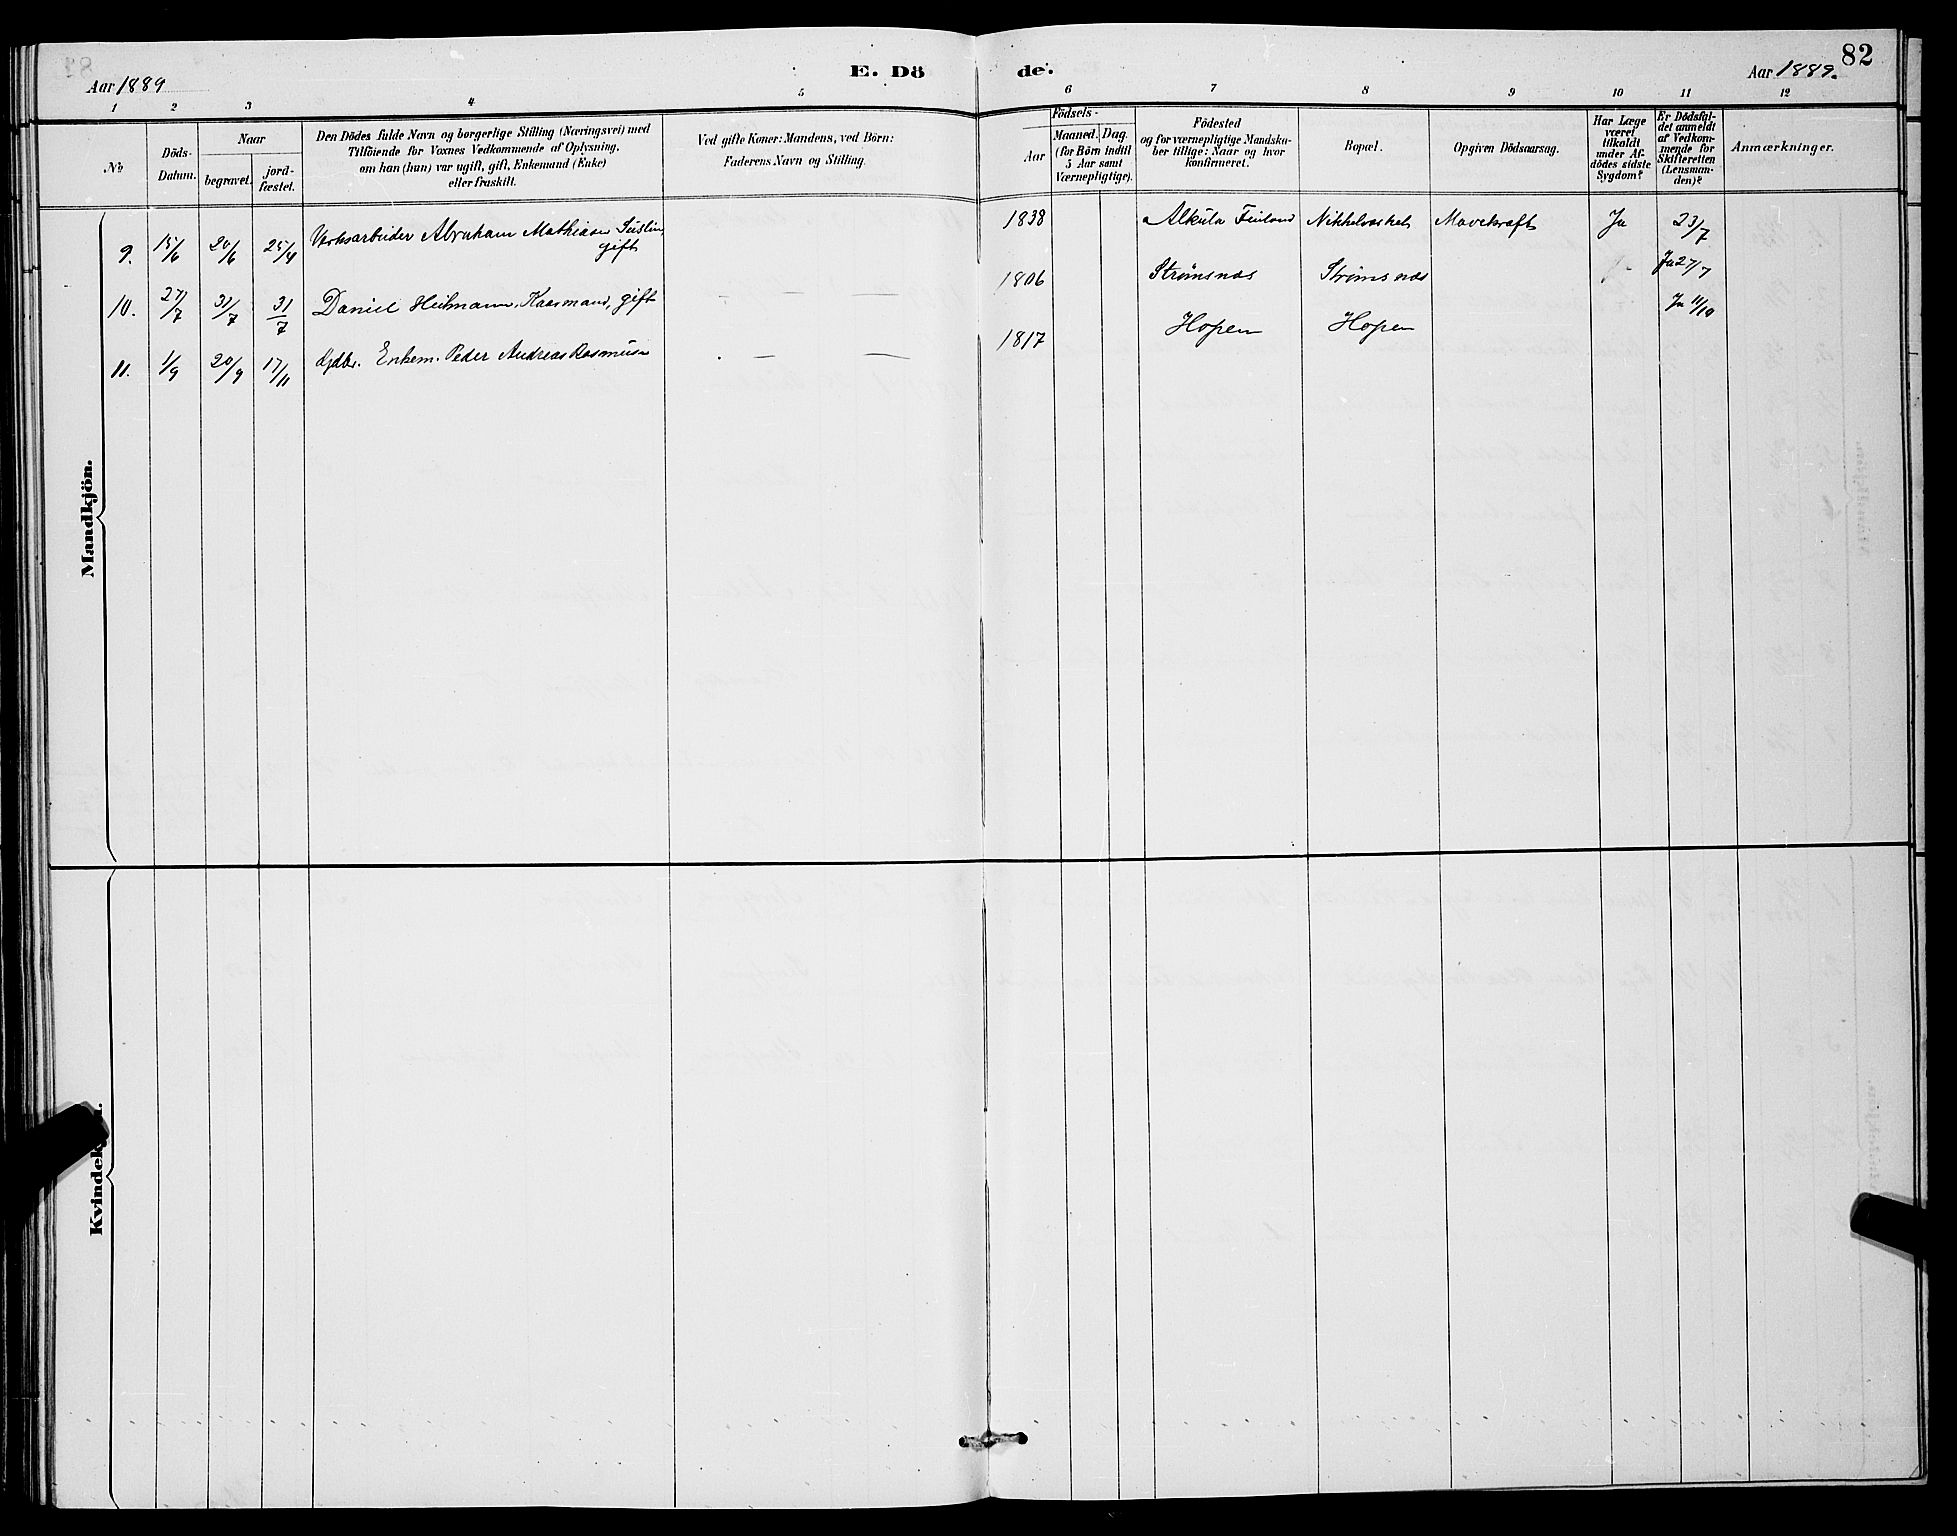 82
Aar 1889
E. Dö
de.
Aar 1889.
1 2 3 4 5 6 7 8 9 10 11 12
No
Döds-
Datum.
Naar
begravet.
jord-
fæstet.
Den Dödes fulde Navn og borgerlige Stilling (Næringsvei) med
Tilföiende for Voxnes Vedkommende af Oplysning,
om han (hun) var ugift, gift, Enkemand (Enke)
eller fraskilt.
Ved gifte Koner: Mandens, ved Börn:
Faderens Navn og Stilling.
Födsels-
Aar
Maaned. Dag.
(for Börn indtil
5 Aar samt
Værnepligtige).
Födested
og for værnepligtige Mandska-
ber tillige: Naar og hvor
konfirmeret.
Bopæl.
Opgiven Dödsaarsag.
Har Læge
været
tilkaldt
under Af-
dödes sidste
Sygdom?
Er Dödsfal-
det anmeldt
af Vedkom-
mende for
Skifteretten
(Lensman-
den)?
Anmærkninger.
Mandkjön.
9. 15/6 20/6 25/4 Verksarbeider Abraham Mathiasen
gift
1838 Alkula Finland Nikkelværket Mavekræft Ja 23/7
10. 27/7 31/7 31/7 Daniel Heitmann, Kaarmand, gift - —
1806 Strømsnæs Strømsnæs Ja 27/7
11. 1/9 20/9 17/11 Gdbr. Enkem. Peder Andreas Rasmusen - — —
1817 Hopen Hopen Ja 11/10
Kvindek